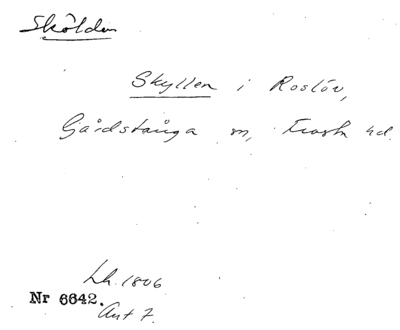 Skölden
Skyllen i Roslöv,
Gårdstånga m, Frosta hd.
Lh. 1806
Nr 6642.
Ant 7.